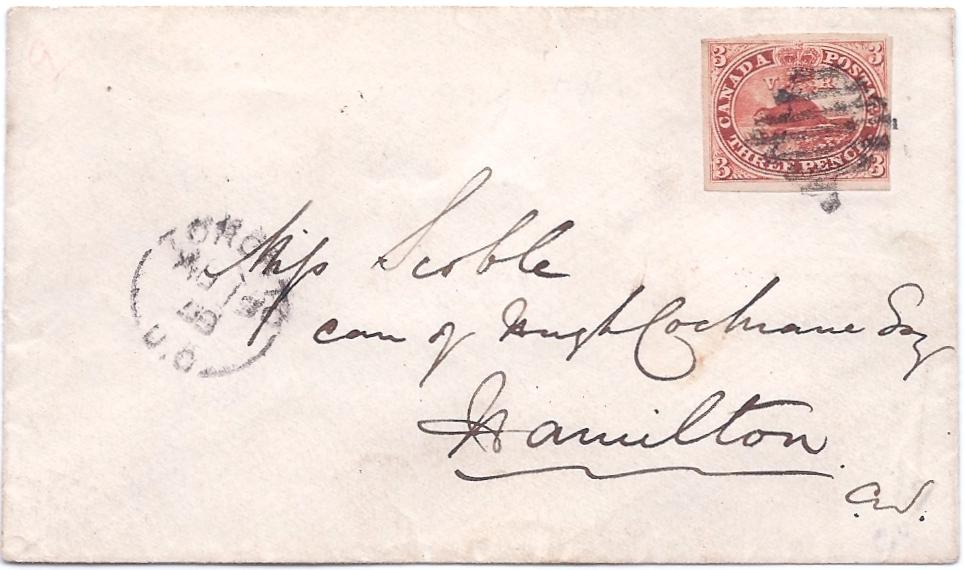 3 CANADA POSTAGE 3
V R
3 THREE PENCE 3
TORONTO
U.C.
Miss Scoble
care of Hugh Cochrane Esq
Hamilton
C.W.